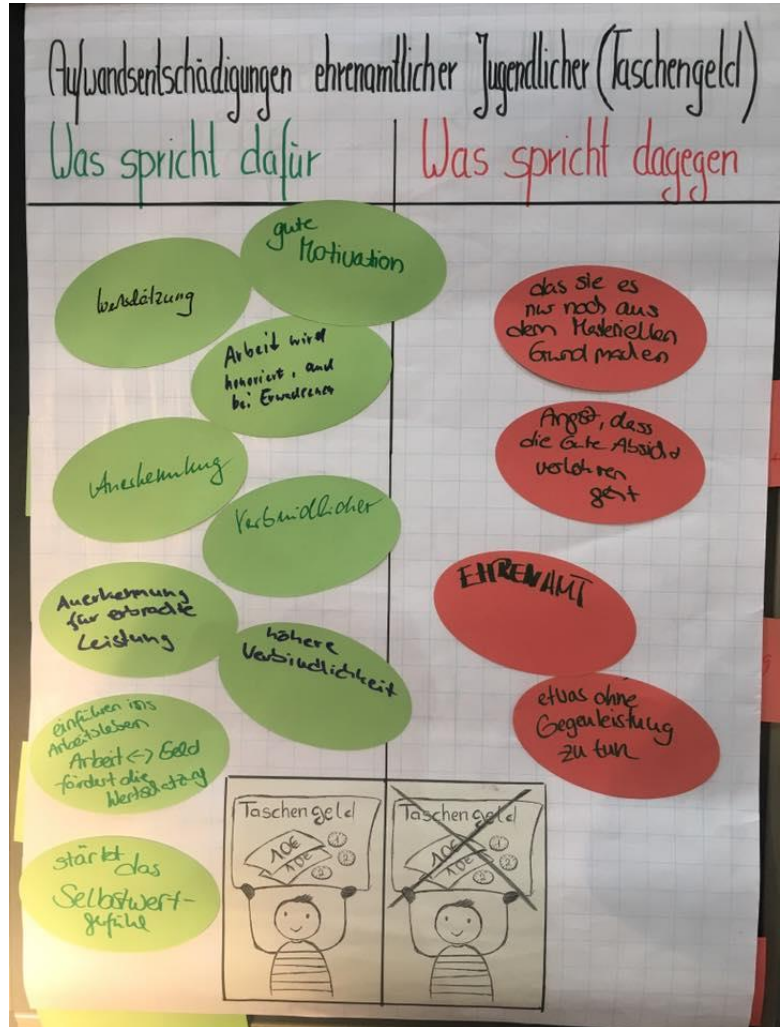 Aufwandsentschädigungen ehrenamtlicher Jugendlicher (Taschengeld)
Was spricht dafür
Was spricht dagegen
gute
Motivation
Arbeit wird
honoriert, auch
bei Erwachsenen
Anerkennung
Verbindlicher
Anerkennung
für erbrachte
Leistung
höhere
Verbindlichkeit
einführen ins
Arbeitsleben
Arbeit <-> Geld
fördert die
Wertschätzung
stärkt das
Selbstwert-
gefühl
das sie es
nur noch aus
dem Materiellen
Grund machen
Angst, dass
die Gute Absicht
verlohren
geht
EHRENAMT
etwas ohne
Gegenleistung
zu tun
Taschengeld
10€
10€
1
2
2
Taschengeld
10€
10€
1
2
2